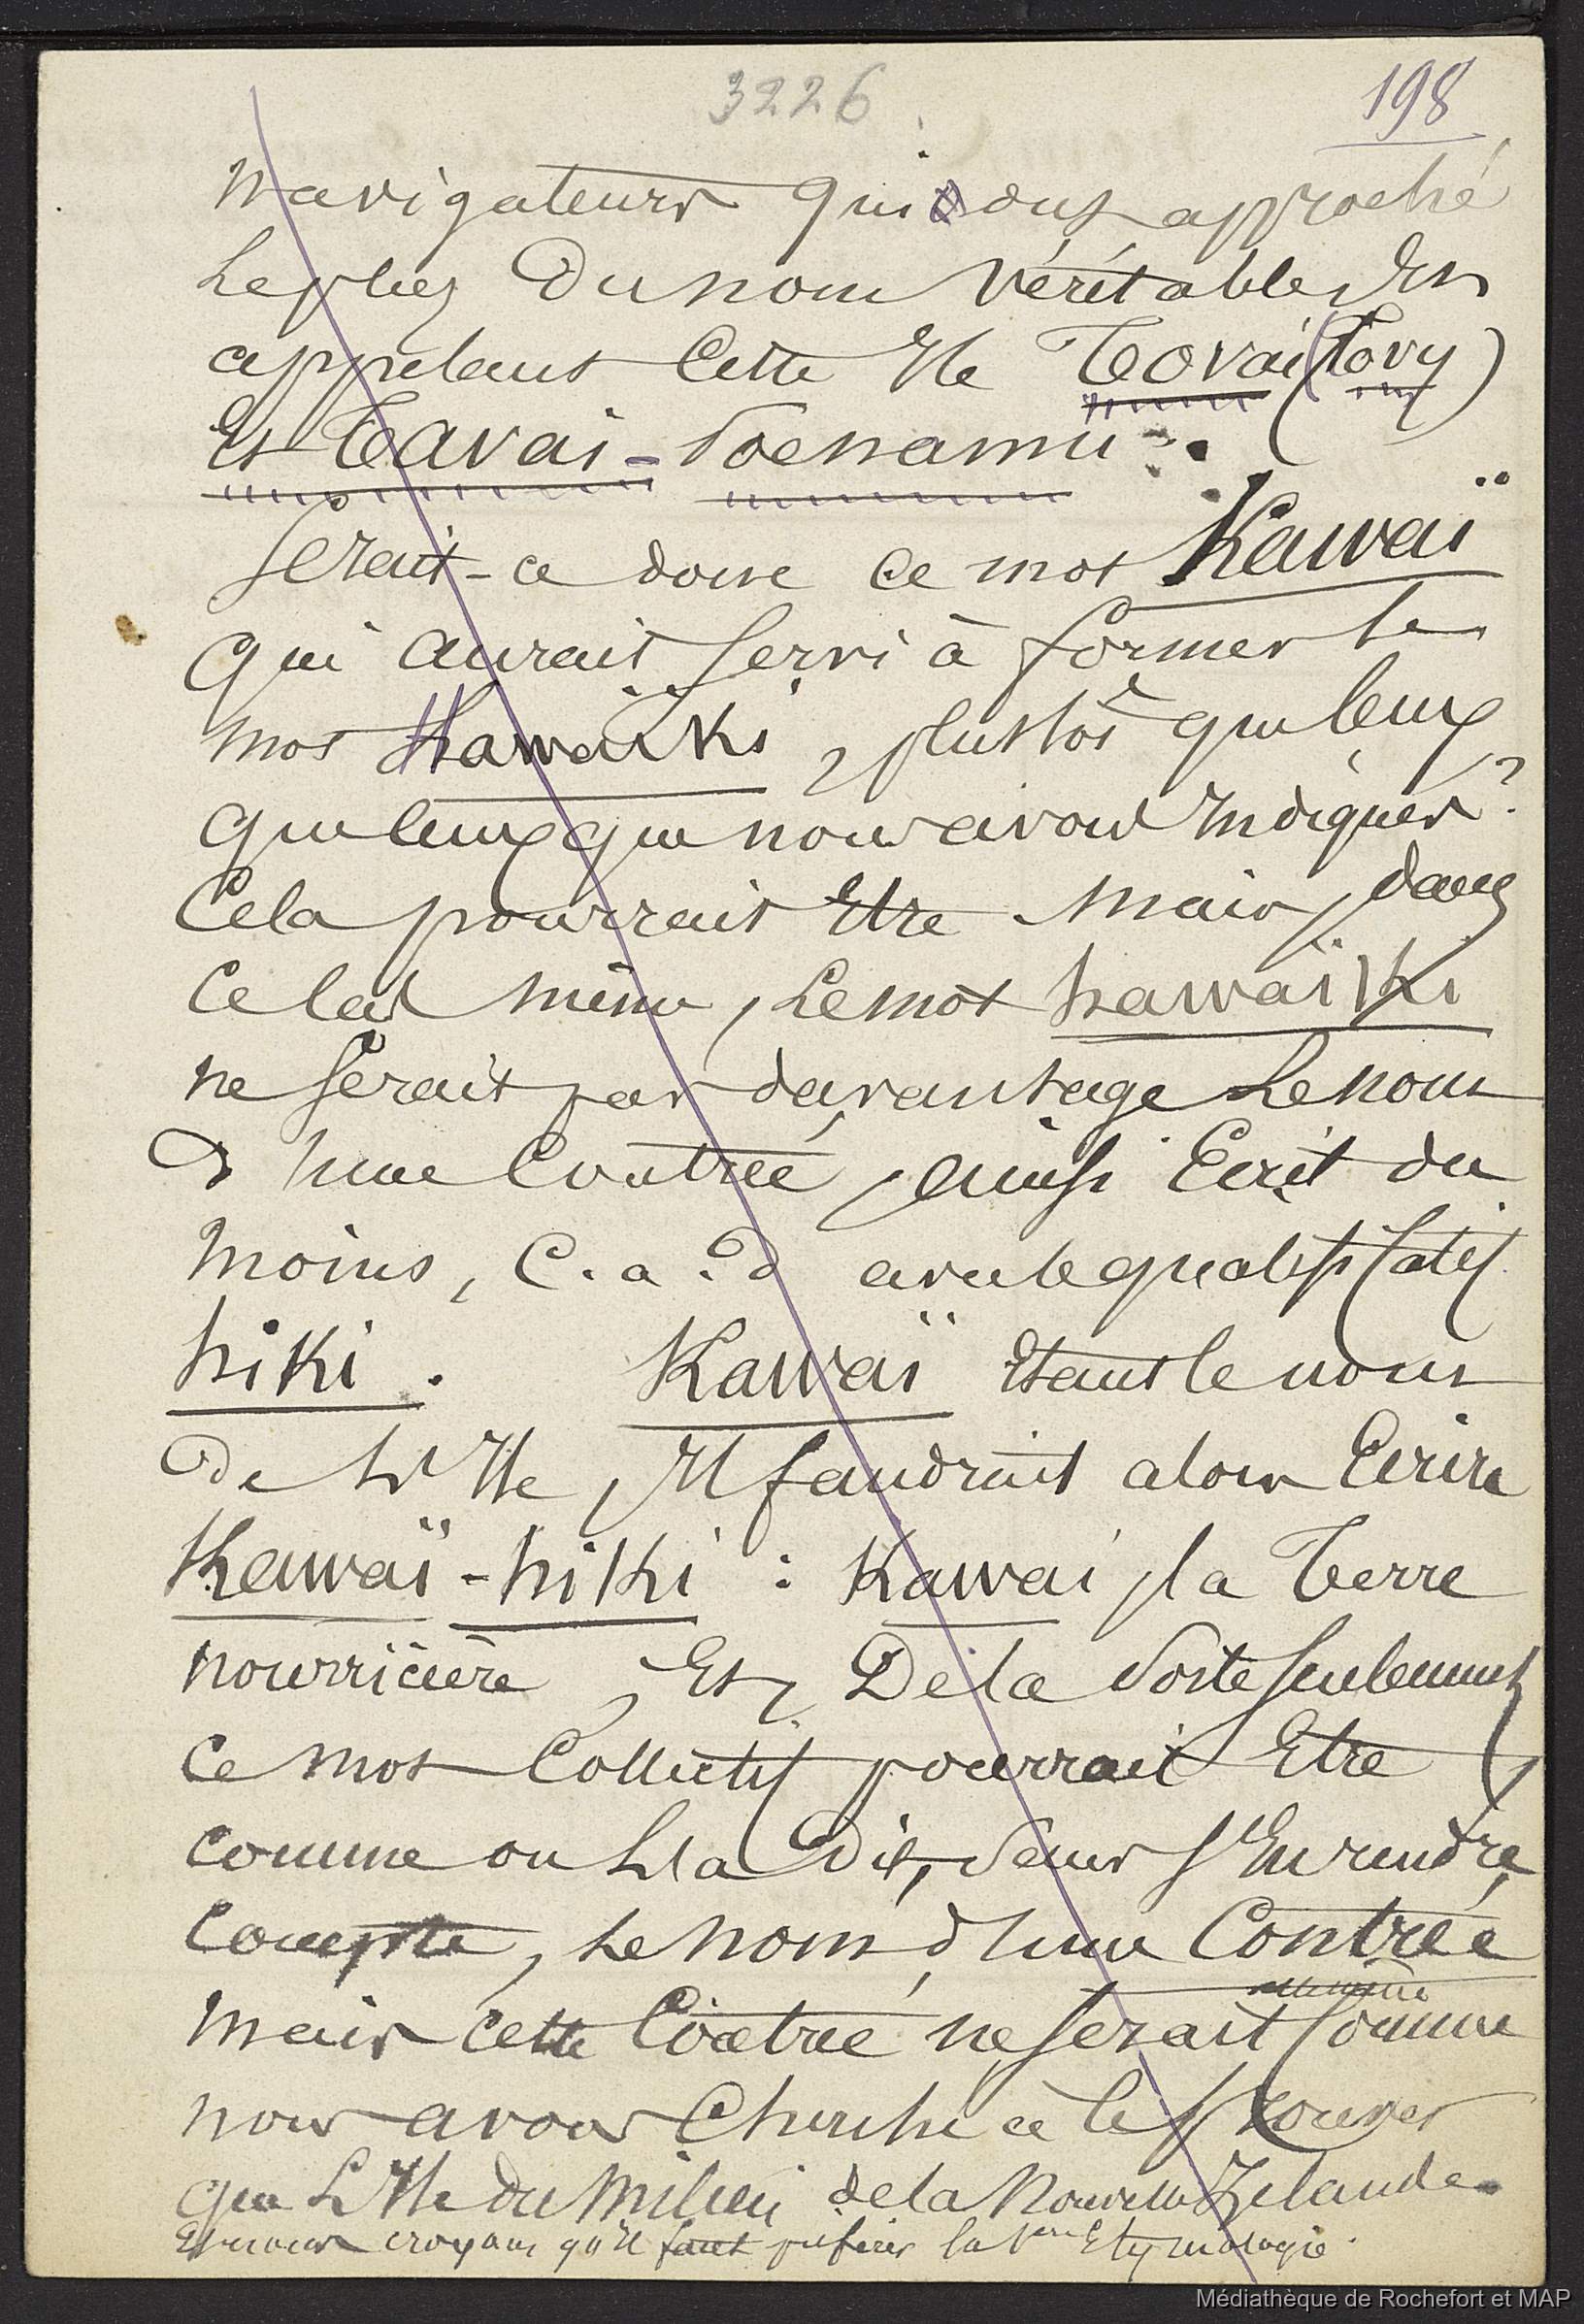 3226
198
navigateurs qui ont approché
le plus du nom véritable en
appelant cette Ile Tovaï (Tovy)
Et Tavaï-Poenamu.
Serait-ce donc ce mot Kawaï
qui aurait servi à former le
mot Hawaïki, plustôt que ceux
que ceux que nous avons indiqués?
Cela pourrait Etre mais, dans
ce cas même, le mot hawaïki
ne serait pas davantage le nom
d'une Contrée, ainsi Ecrit du
moins, c.a.d avec le qualificatif
hiki. Kawaï Etant le nom
de l'Ile, Il faudrait alors Ecrire
Kawaï-hiki : Kawai, la Terre
nourricière, Et, De la sorte seulement,
ce mot Collectif pourrait Etre
comme on l'a Dit, sans s'En rendre
Compte, le nom d'une Contrée
mais cette Contrée ne serait comme
nous avons Cherché à le prouver
que L'Ile du Milieu de la Nouvelle Zélande.
Et nous croyons qu'il faut préférer la 1ere Etymologie.
Médiathèque de Rochefort et MAP